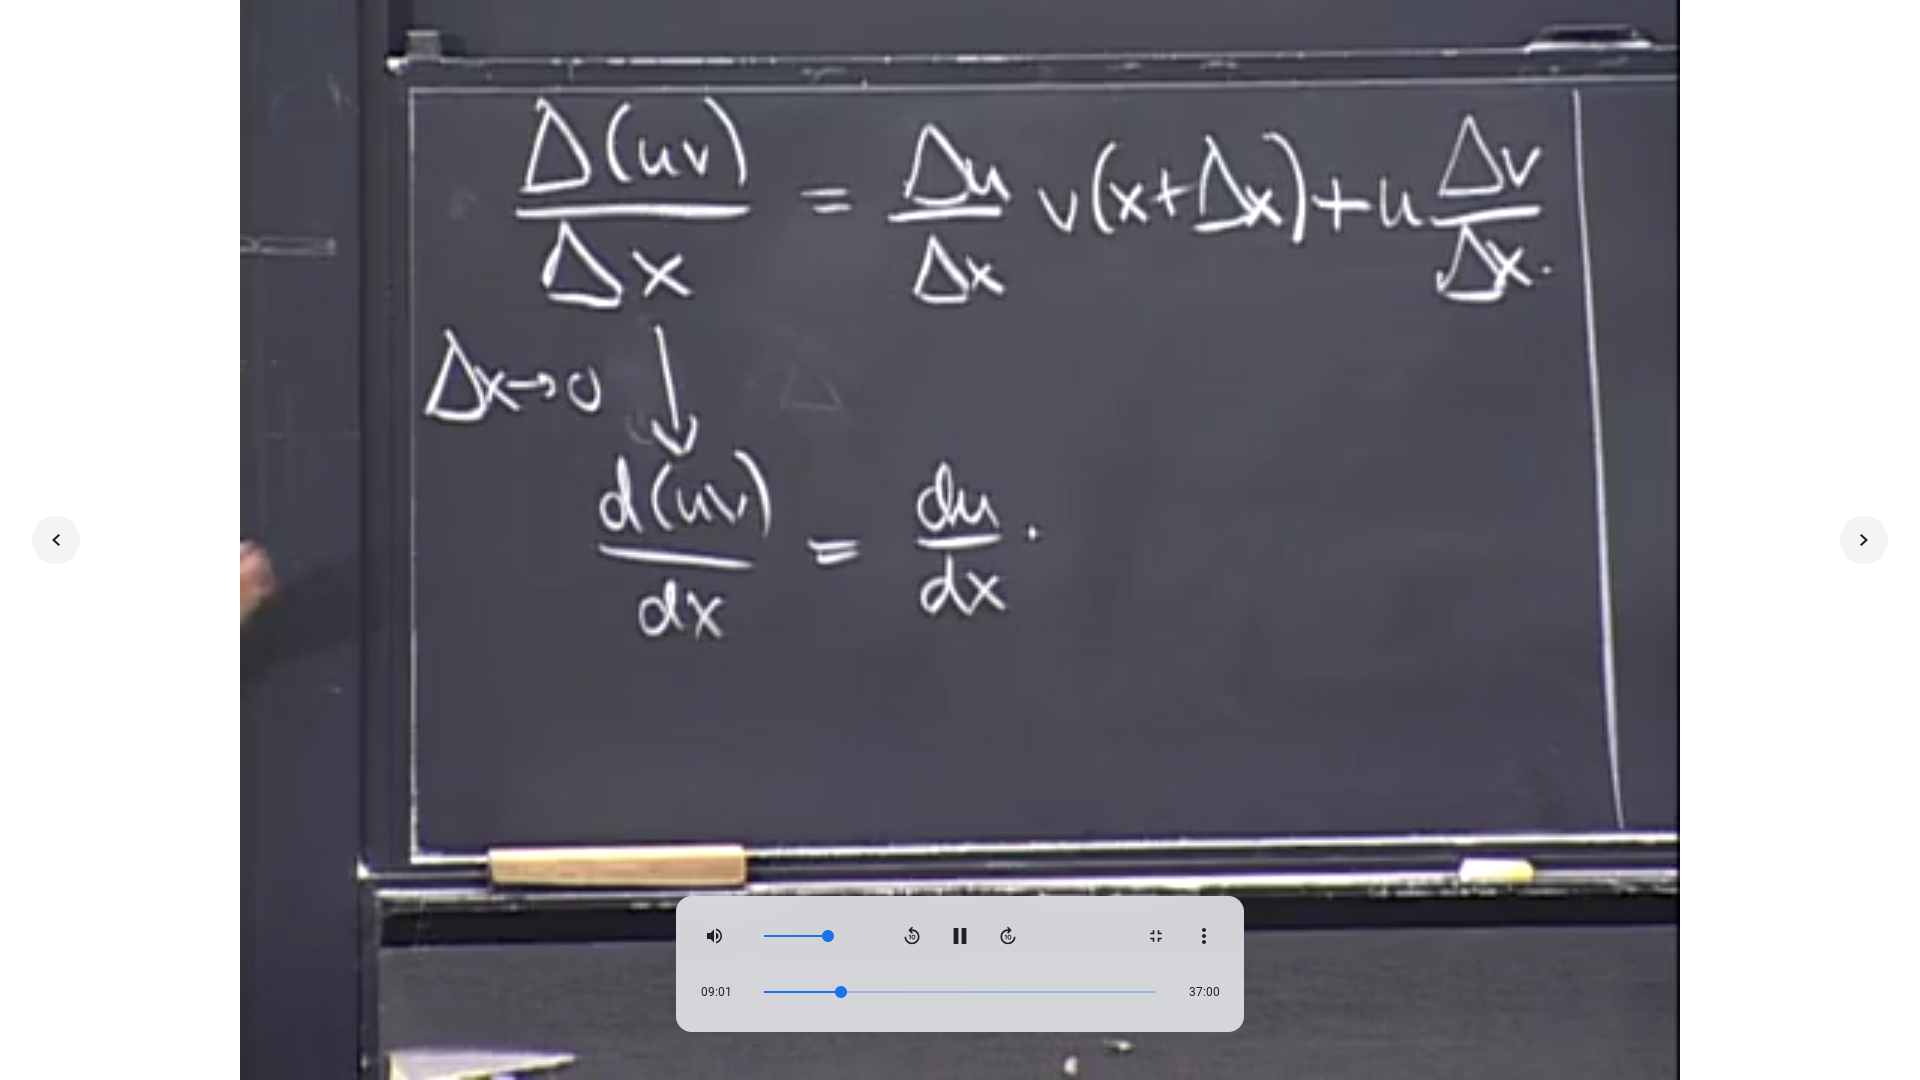 Δ(uv)/Δx = Δu/Δx v(x+Δx)+u Δv/Δx.
Δx→0 ↓
d(uv)/dx = du/dx ·
10 10
09:01 37:00